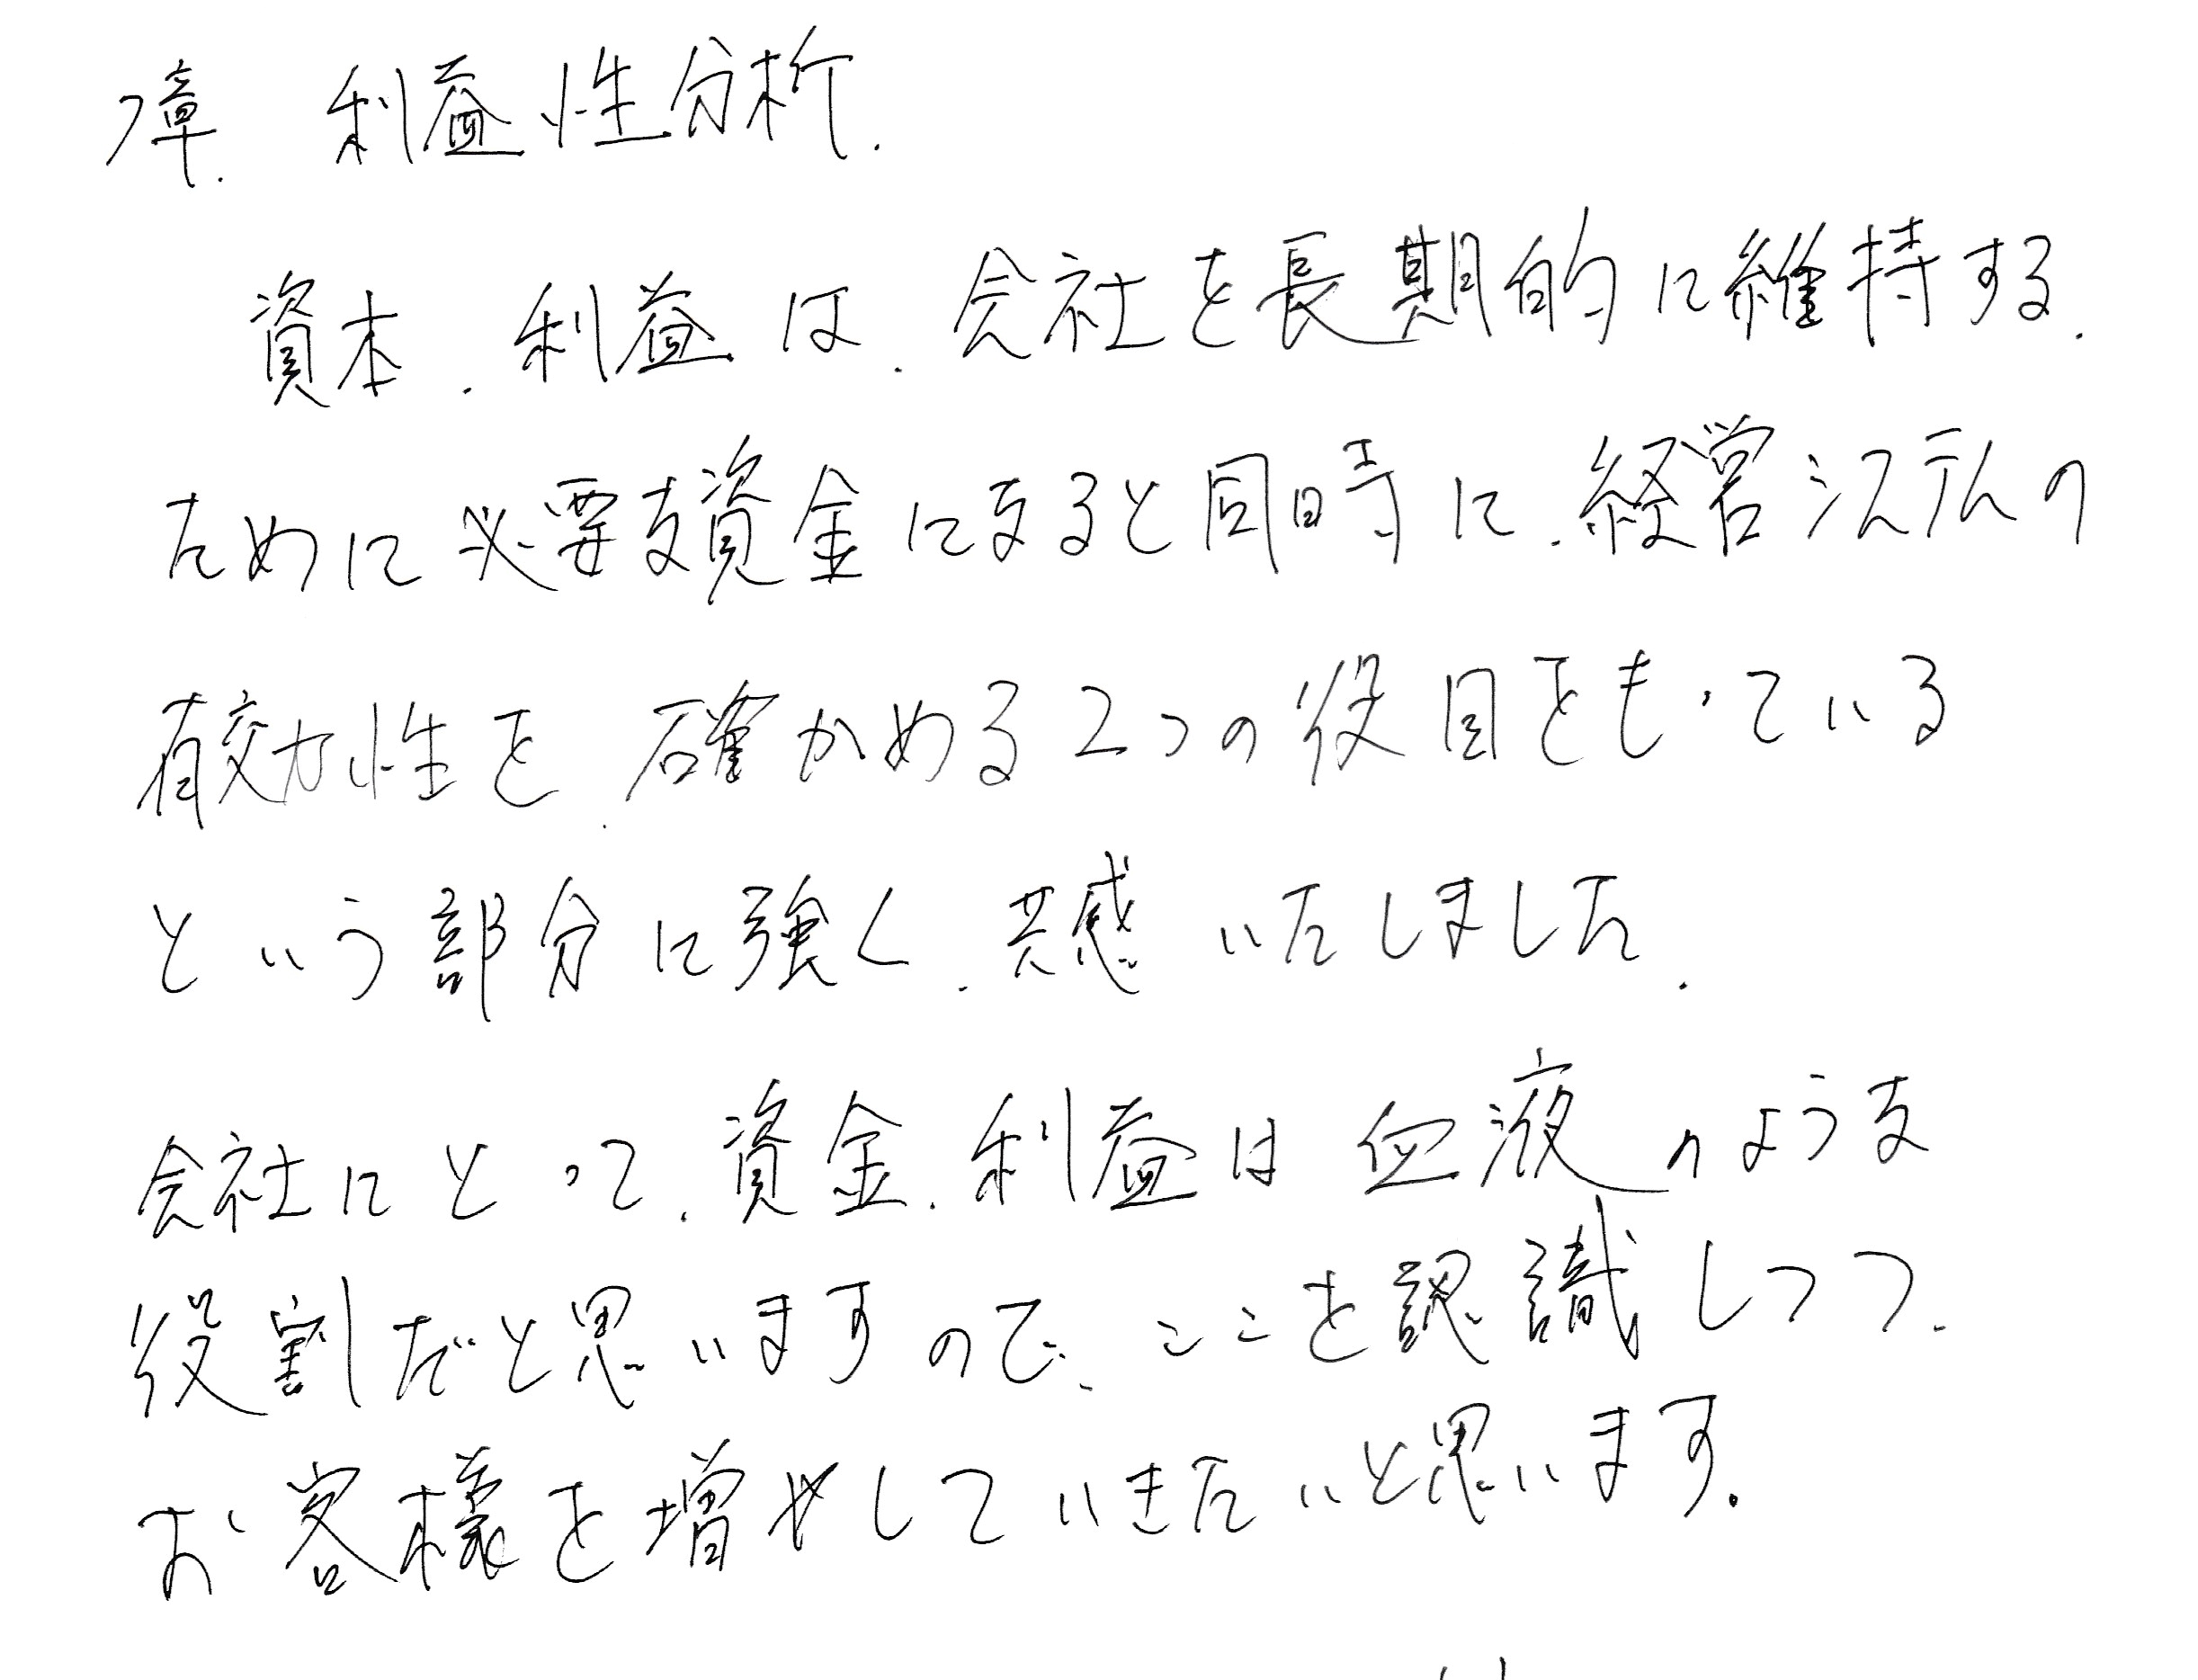 7章. 利益性分析.
資本、利益は、会社を長期的に維持する.
ために必要な資金になると同時に、経営システムの
有効性を、確かめる2つの役目をもっている
という部分に強く、共感いたしました.
会社にとって、資金、利益は血液のような
役割だと思いますので、ここを認識しつつ、
お客様を増やしていきたいと思います。